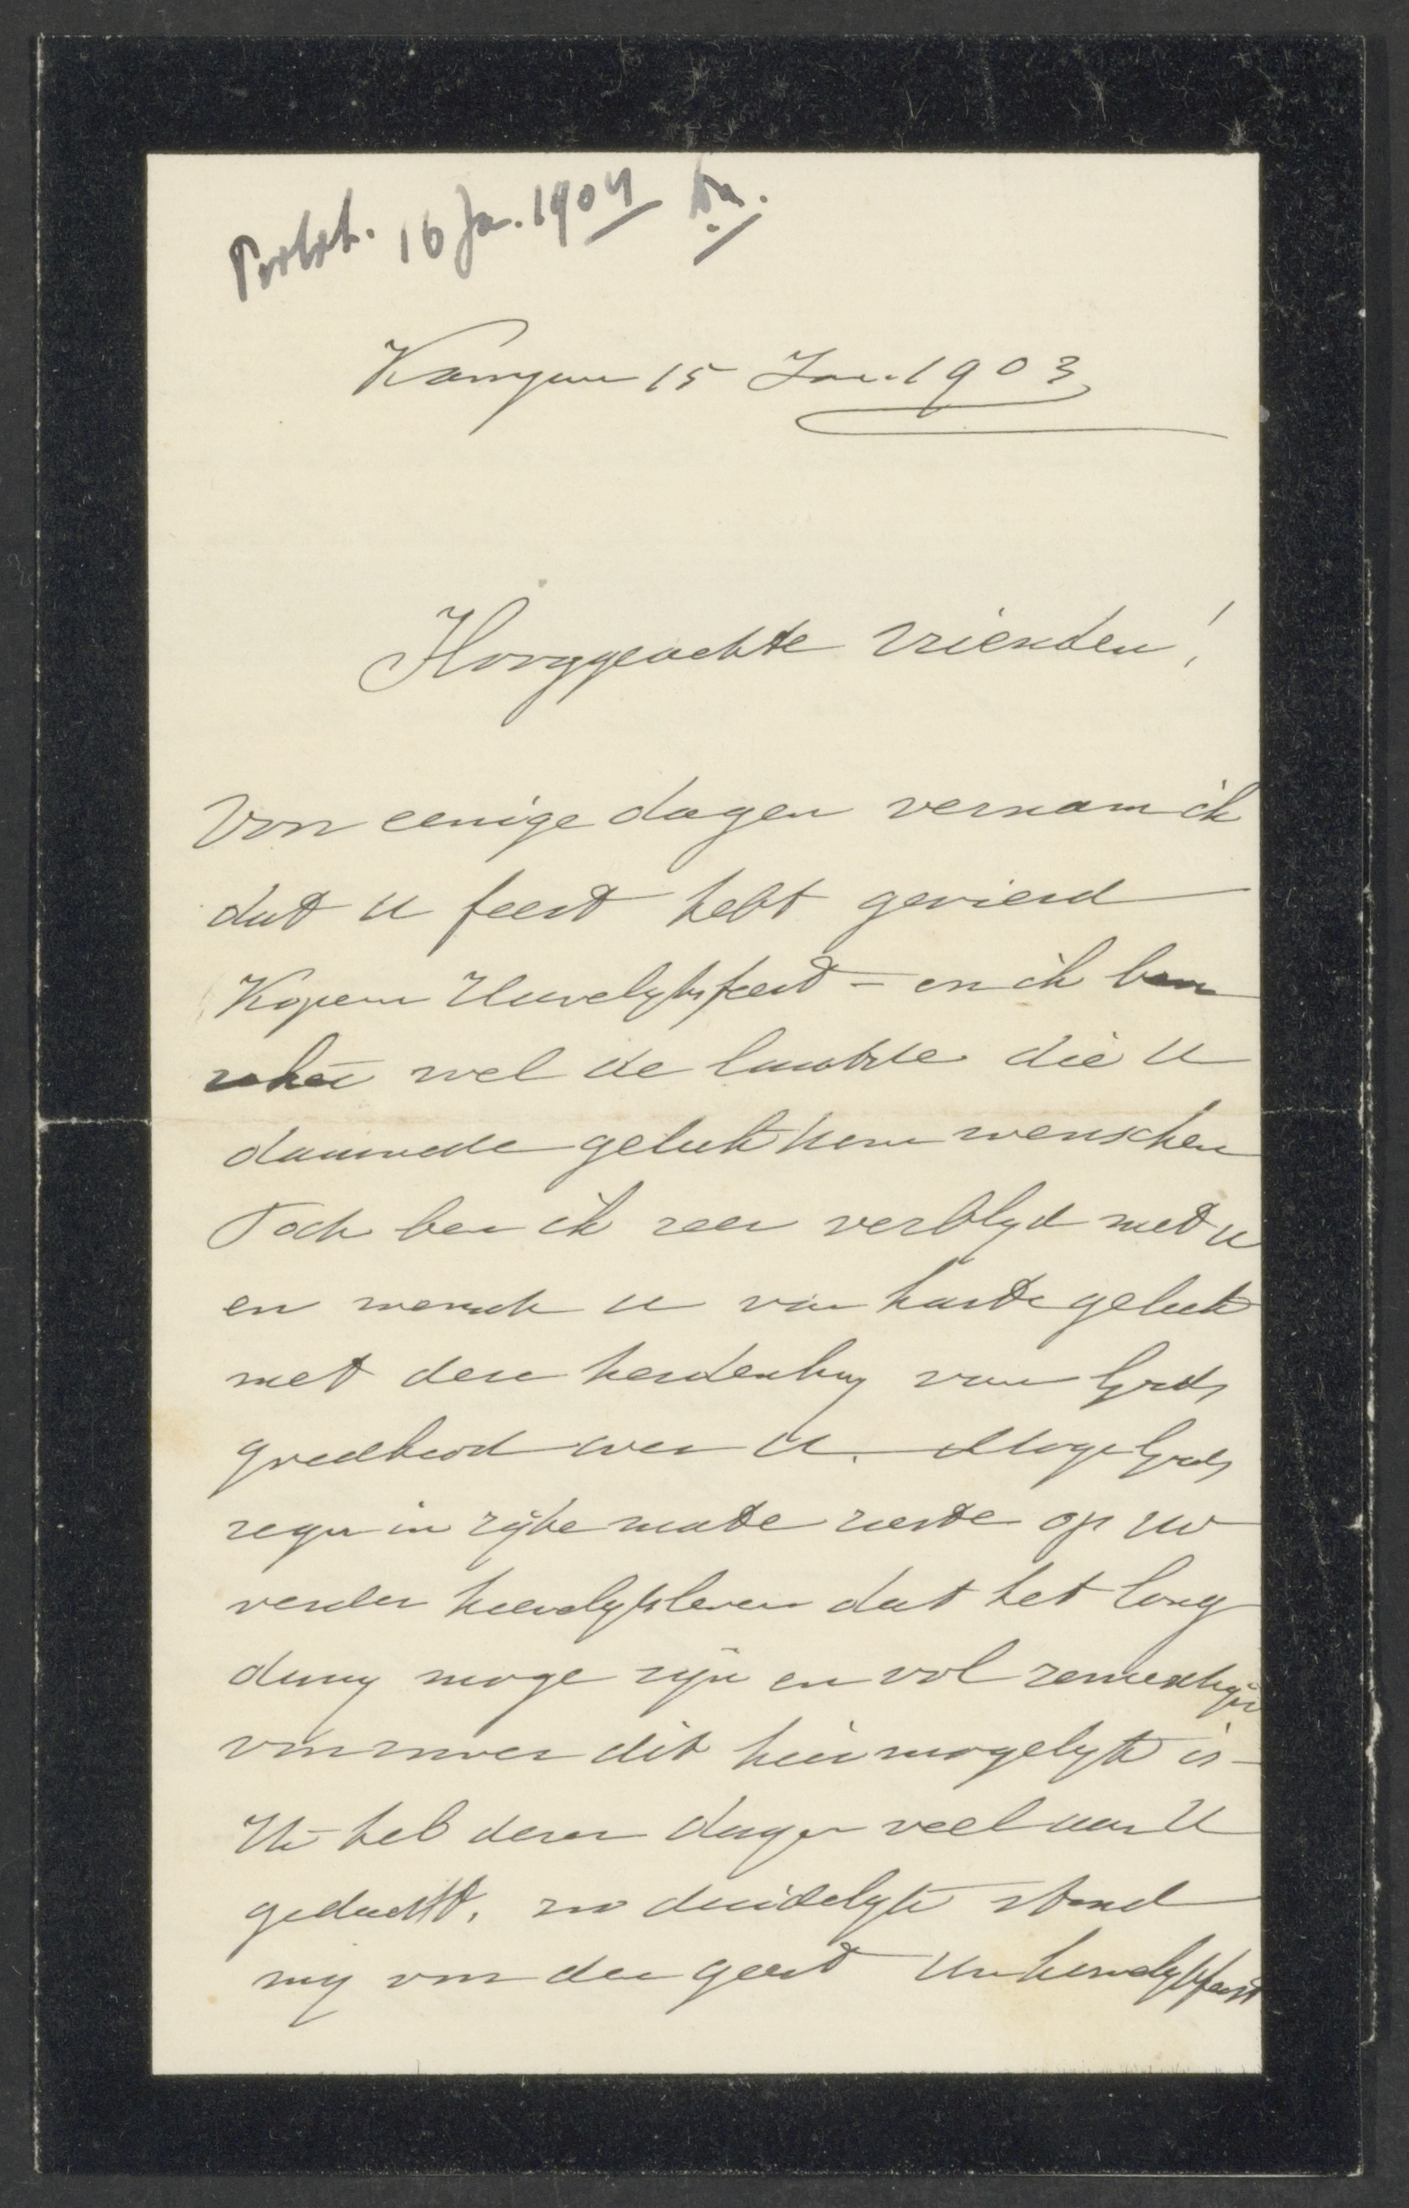 16 Ja. 1904
Kampen 15 Jan. 1903
Hooggeachte vrienden!
Voor eenige dagen vernam ik
dat U feest hebt gevierd
Koperen Huwelyksfeest – en ik ben
zeker wel de laatste die U
daarmede geluk kom wenschen
Toch ben ik zeer verblyd met u
en wensch U van harte geluk
met deze herdenking van Gods
goedheid over U. Moge Gods
zegen in rijke mate ruste op uw
verder huwelyksleven dat het lang
durig moge zijn en vol
voorzoover dit hier mogelyk is –
Ik heb dezer dagen veel aan U
gedacht, zoo duidelyk stond
my voor den geest Uw huwelyksfeest